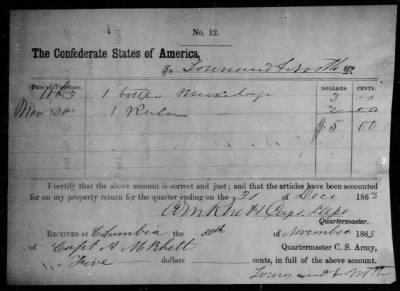 No. 12.
The Confederate States of America,
To Townsend & North Dr.
Date of Purchase. DOLLARS. CENTS.
1863 1 bottle Mucilage 3 00
Nov 30 1 Ruler 2 00
$ 5 00
I certify that the above account is correct and just; and that the articles have been accounted
for on my property return for the quarter ending on the 31 of Dec 1863
A M Rhett Capt
Quartermaster.
RECEIVED at Columbia the 30th of November 1863
of Capt A M Rhett Quartermaster C. S. Army,
Five dollars cents, in full of the above account.
Townsend & North